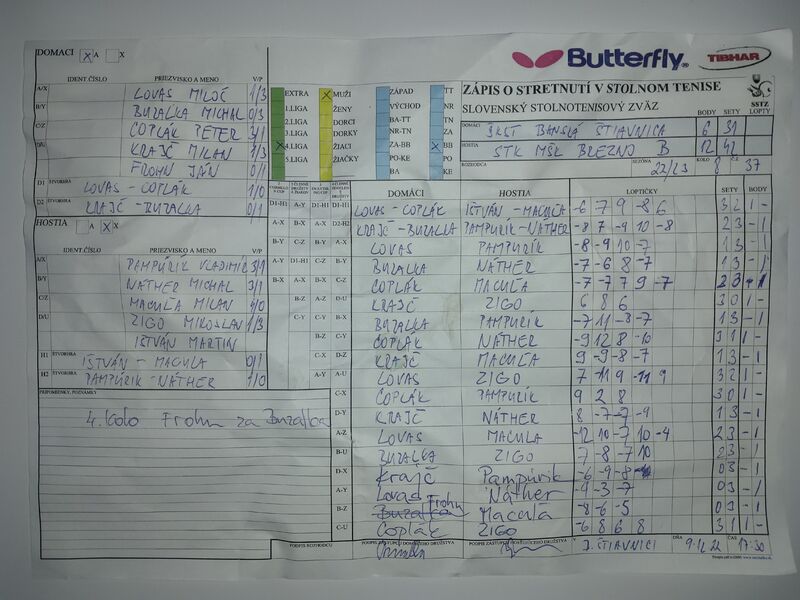 DOMÁCI X A X
Butterfly
TIBHAR
IDENT.ČÍSLO PRIEZVISKO A MENO V/P
A/X LOVAS MILOČ 1/3
B/Y BUZALKA MICHAL 0/3
C/Z COPLÁK PETER 3/1
KRAJČ MILAN 1/3
FROHN JÁN 0/1
D1 ŠTVORHRA LOVAS - COPLÁK 1/0
D2 ŠTVORHRA KRAJČ - BUZALKA 0/1
EXTRA
1.LIGA
2.LIGA
3.LIGA
X 4.LIGA
5.LIGA
X MUŽI
ŽENY
DORCI
DORKY
ŽIACI
ŽIAČKY
ZÁPAD
VÝCHOD
BA-TT
NR-TN
X ZA-BB
PO-KE
BA
TT
TN
NR
ZA
BB
PO
KE
ZÁPIS O STRETNUTÍ V STOLNOM TENISE
SLOVENSKÝ STOLNOTENISOVÝ ZVÄZ
SSTZ
BODY SETY LOPTY
DOMÁCI BANSKÁ ŠTIAVNICA 6 31
HOSTIA STK MŠK BREZNO B 12 42
ROZHODCA SEZÓNA 22/23 KOLO 8 Č.Z. 37
HOSTIA A X X
IDENT.ČÍSLO PRIEZVISKO A MENO V/P
A/X PAMPÚRIK VLADIMÍR 3/1
B/Y NÁTHER MICHAL 3/1
C/Z MACUĽA MILAN 4/0
D/U ZIGO MIROSLAV 1/3
IŠTVÁN MARTIN
H1 ŠTVORHRA IŠTVÁN - MACULA 0/1
H2 ŠTVORHRA PAMPÚRIK - NÁTHER 1/0
PRIPOMIENKY, POZNÁMKY
4. kolo Frohn za Buzalku
DOMÁCI HOSTIA LOPTIČKY SETY BODY
LOVAS - COPLÁK IŠTVÁN - MACUĽA -6 7 9 -8 6 3 2 1 -
KRAJČ - BUZALKA PAMPÚRIK - NÁTHER -8 7 -9 10 -8 2 3 - 1
LOVAS PAMPÚRIK -8 -9 10 -7 1 3 - 1
BUZALKA NÁTHER -7 -6 8 -7 1 3 - 1
COPLÁK MACUĽA -7 -7 7 9 -7 2 3 - 1
KRAJČ ZIGO 6 8 6 3 0 1 -
BUZALKA PAMPÚRIK -7 11 -3 -7 1 3 - 1
COPLÁK NÁTHER -9 12 8 10 3 1 1 -
KRAJČ MACUĽA 9 -9 -8 -7 1 3 - 1
LOVAS ZIGO 7 -11 9 -11 9 3 2 1 -
COPLÁK PAMPÚRIK 9 2 8 3 0 1 -
KRAJČ NÁTHER 8 -7 -7 -9 1 3 - 1
LOVAS MACULA -12 10 -7 10 -4 2 3 - 1
BUZALKA ZIGO
Krajč Pampúrik 0 3 - 1
Lovas Náther -9 -3 -7 0 3 - 1
Buzalka Frohn Macula -8 -6 -5 0 3 - 1
Coplák ZIGO -6 8 6 8 3 1 1 -
PODPIS ROZHODCU
PODPIS ZÁSTUPCU DOMÁCEHO DRUŽSTVA
PODPIS ZÁSTUPCU HOSŤUJÚCEHO DRUŽSTVA
B. ŠTIAVNICI DŇA 9.12.22 ČAS 17:30